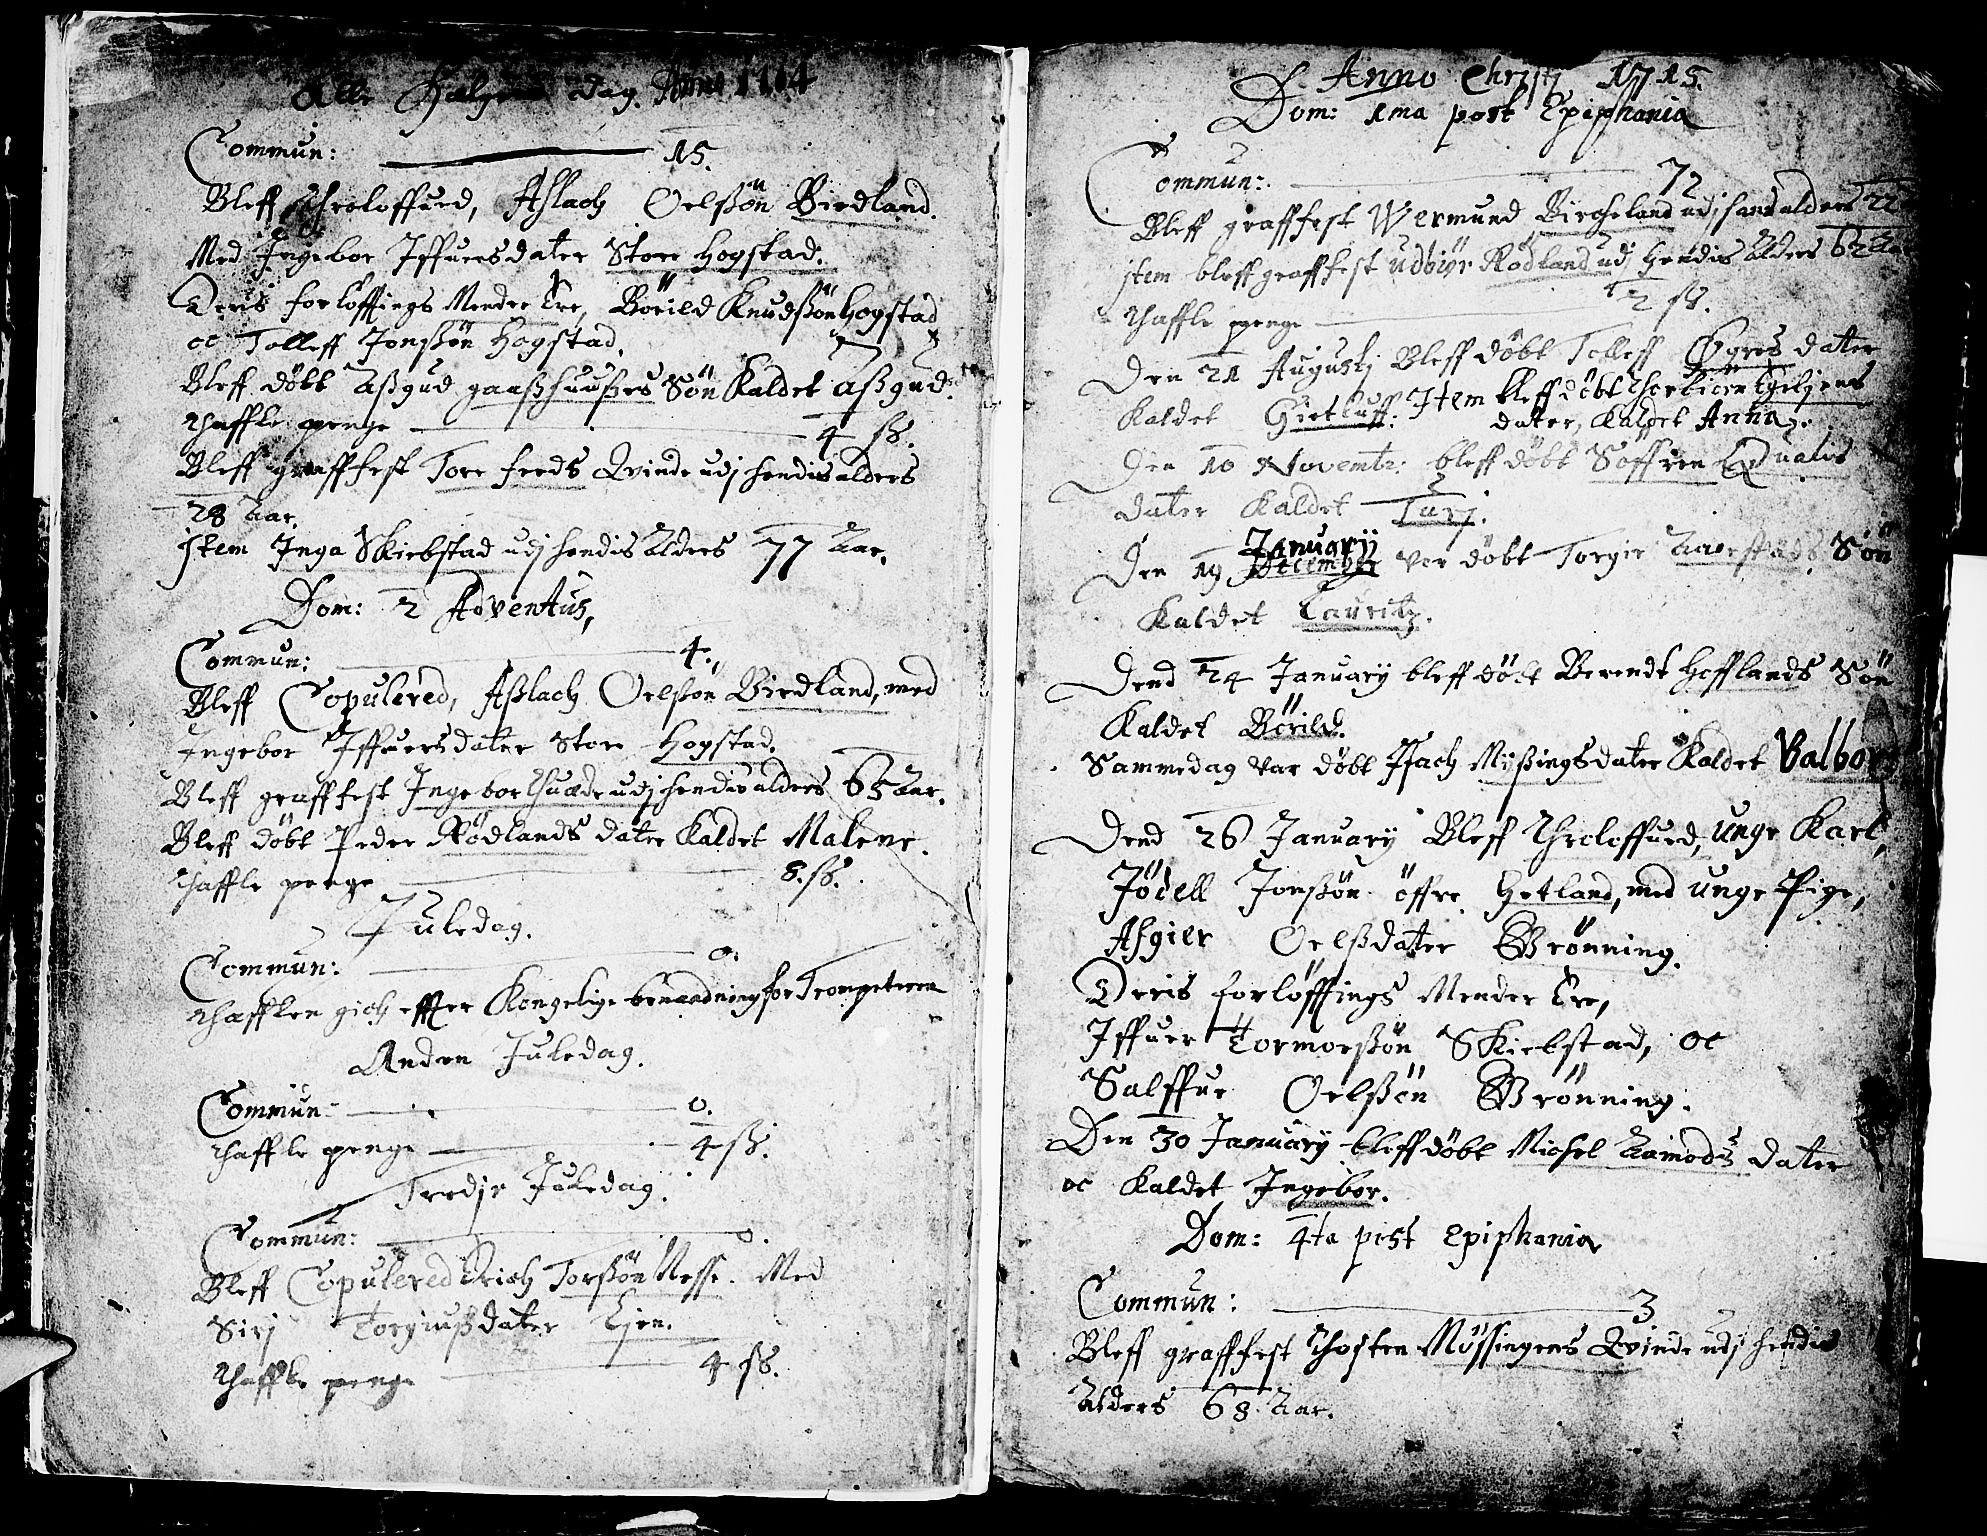 Alle Helgens dag. Anno 1714
Commun: 15.
Bleff throloffued, Aslach Oelßön Birdland.
Med Ingebor Iffuersdater Store Hogstad.
Deris forlöffings Mender Ere, Börild Knudßön Hogstad
oc Tolleff Jonßön Hogstad.
Bleff döbt Aßgud gaaßhuußes Sön Kaldet Aßgud.
thaffle penge 4 ſß.
Bleff graffest Tore feeds Qvinde udj hendis alders
28 Aar.
jtem Inga Skiebstad udj hendis Alders 77 Aar.
Dom: 2 Adventus,
Commun: 4.
Bleff Copulered, Aßlach Oelßön Birdland, med
Ingebor Iffuersdater Store Hogstad.
Bleff graffest Ingebor udj hendis alders 65 Aar.
Bleff döbt Peder Rödlands dater Kaldet Malene.
thaffle penge 8. ſß.
Juledag.
Commun: 0.
thafflen gich effter Kongelige benaadning for Trompeteren
Anden Juledag.
Commun: 0.
thaffle penge 4 ſß.
Tredje Juledag.
Commun: 0.
Bleff Copulered Erich Torßön Nesse. Med
Sirj Torgiußdater Ejen.
thaffle penge 4 ſß.
Anno Christj 1715.
Dom: 1ma post Epiphania
Commun: 72
Bleff graffest Wermund Bircheland udj hans alders 22
jtem bleff graffest Rödland udj hendis Alders 62 Aar
thaffle penge 12 ſß.
Den 21 Augustj Bleff döbt Tolleff Ögres dater
Kaldet Giertluff. Item bleff döbt Giljens
dater, Kaldet Anna.
Den 10 Novembr: bleff döbt Söffren Qualis
dater Kaldet Turj.
Januarij
Den 19 December var döbt Torgir Aarestads Sön
Kaldet Lauritz.
Dend 24 January bleff döbt Berendt Hefflands Sön
Kaldet Börild.
Sammedag var döbt Isach Mößings dater Kaldet Valbor
Dend 26 January Bleff throloffued, unge Karl,
Jödell Jonßön öffre Hetland, med unge Pige,
Asgier Oelßdater Brönning.
Deris forlöffings Mender Ere,
Iffuer Tormorßön Skiebstad, oc
Salffue Oelßön Brönning.
Den 30 January bleff döbt Michel Aamods dater
oc Kaldet Ingebor.
Dom: 4ta post Epiphania
Commun: 3
Bleff graffest thosten Mössingens Qvinde udj hendis
Alders 68 Aar.